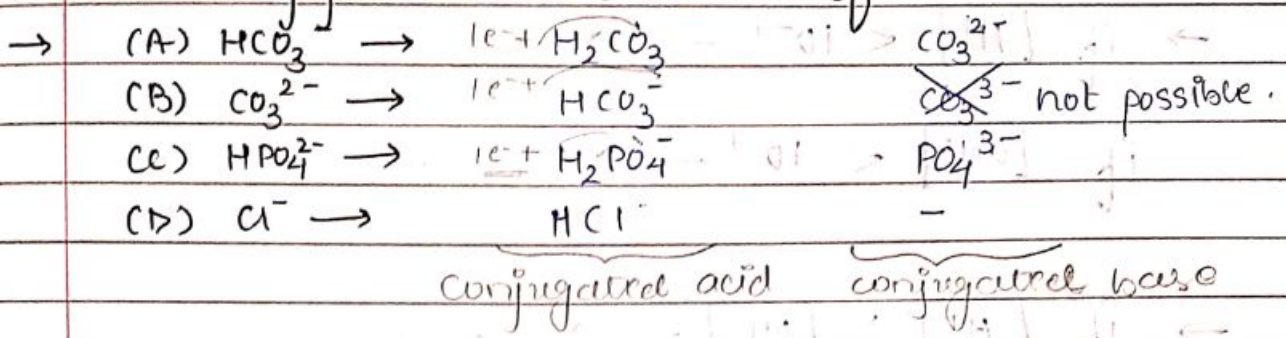 → (A) HCO₃⁻ → 1e⁻ + H₂CO₃ CO₃²⁻
(B) CO₃²⁻ → 1e⁻ + HCO₃⁻ CO₃³⁻ not possible.
(C) HPO₄²⁻ → 1e⁻ + H₂PO₄⁻ PO₄³⁻
(D) Cl⁻ → HCl –
conjugated acid conjugated base